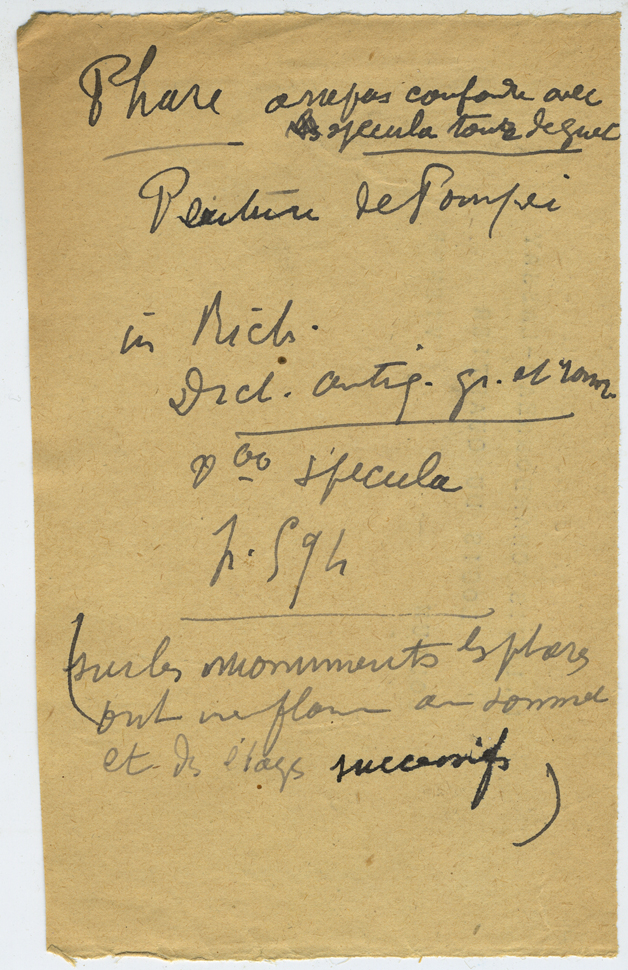 Phare à ne pas confondre avec
les specula tours de guet
Peinture de Pompei
in Rich.
Dict. antiq. gr. et rom.
v° specula
p. 594
(sur les monuments les phares
ont une flamme au sommet
et des étages successifs)